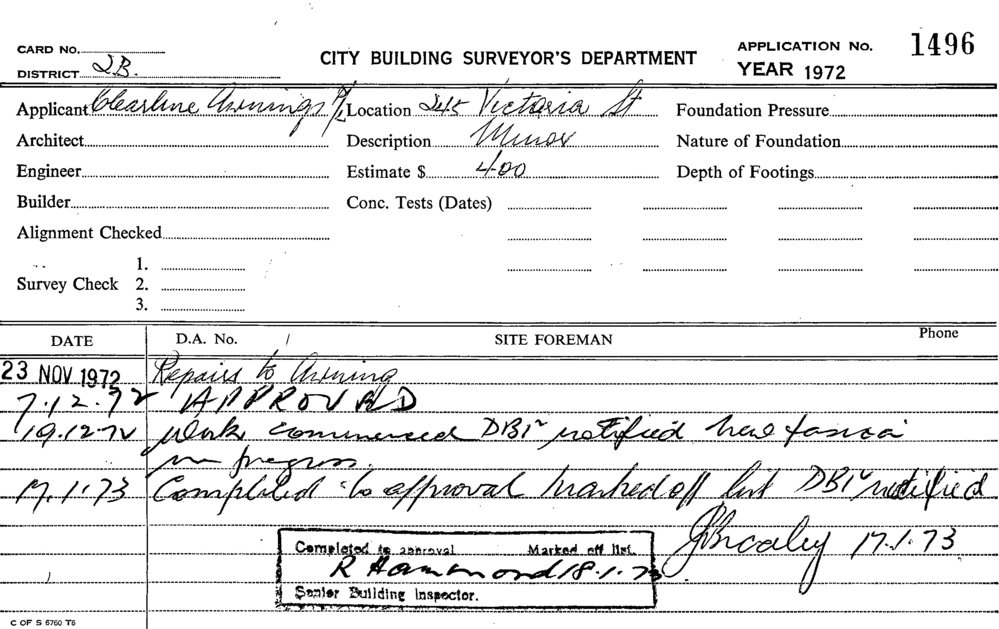 CARD No.
DISTRICT 2B.
CITY BUILDING SURVEYOR'S DEPARTMENT
APPLICATION No. 1496
YEAR 1972
Applicant Clearline Awnings P/L Location 245 Victoria St Foundation Pressure
Architect Description Minor Nature of Foundation
Engineer Estimate $ 400 Depth of Footings
Builder Conc. Tests (Dates)
Alignment Checked
1.
Survey Check 2.
3.
DATE D.A. No. / SITE FOREMAN Phone
23 NOV 1972 Repairs to Awning
7.12.72 APPROVED
19.12.72 Work commenced DBI notified new fascia
in progress.
17.1.73 Completed to approval marked off list DBI notified
17.1.73
Completed to approval Marked off list.
R Hammond 18.1.73
Senior Building Inspector.
C OF S 6760 T6